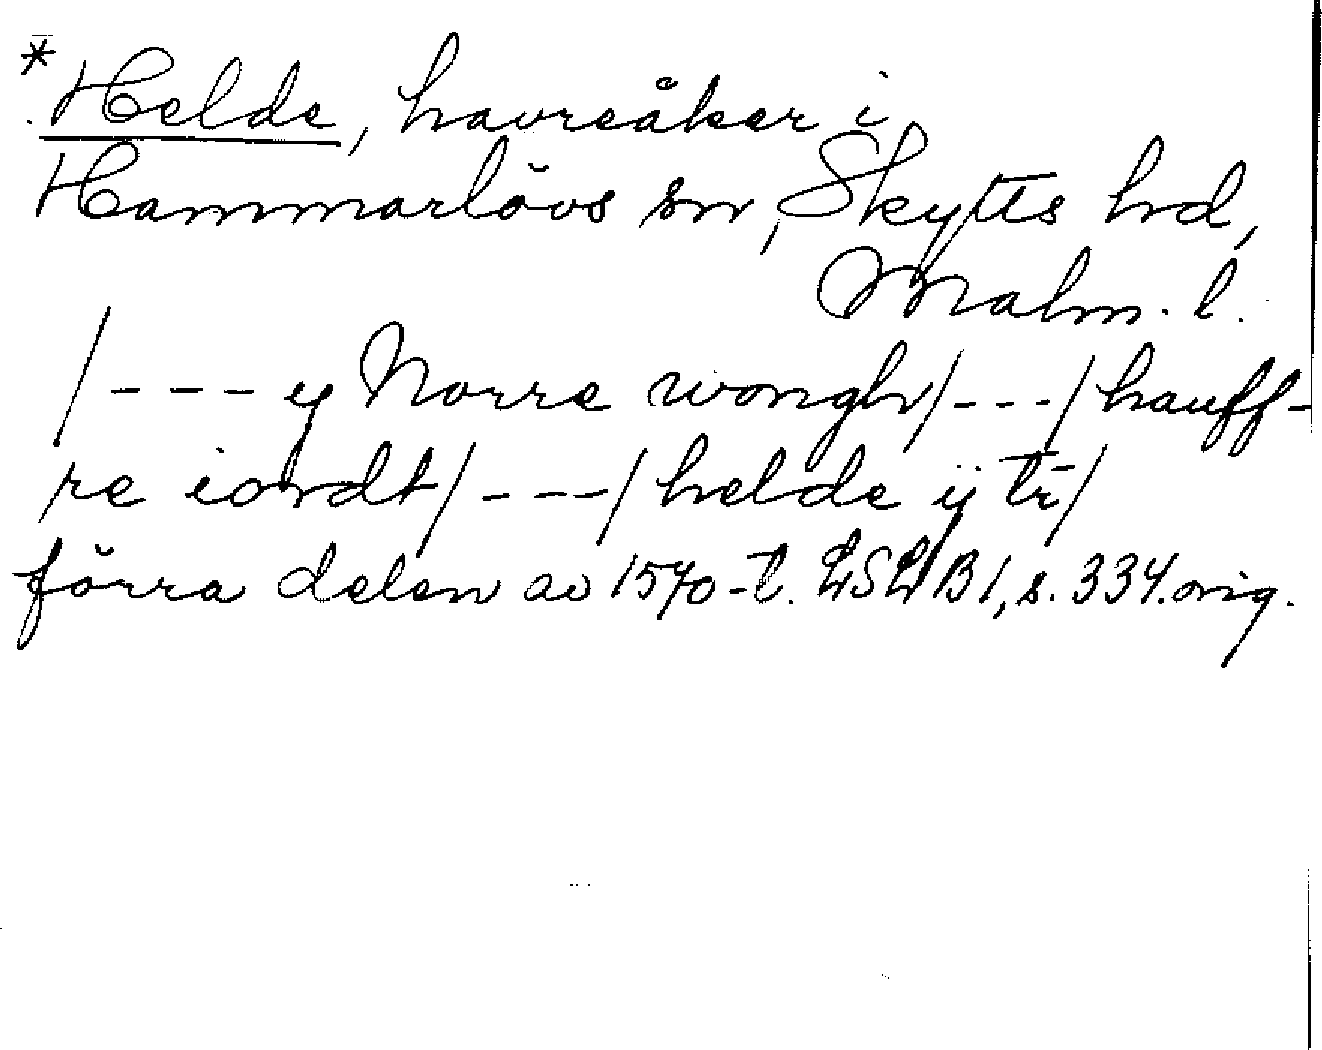 *Helde, havreåker i
Hammarlövs sn, Skytts hd,
Malm. l.
/---y Norre wongh/---/hauff-
re iordt/---/helde ij tr/
förra delen av 1570-t. LSLB1, s. 334. orig.